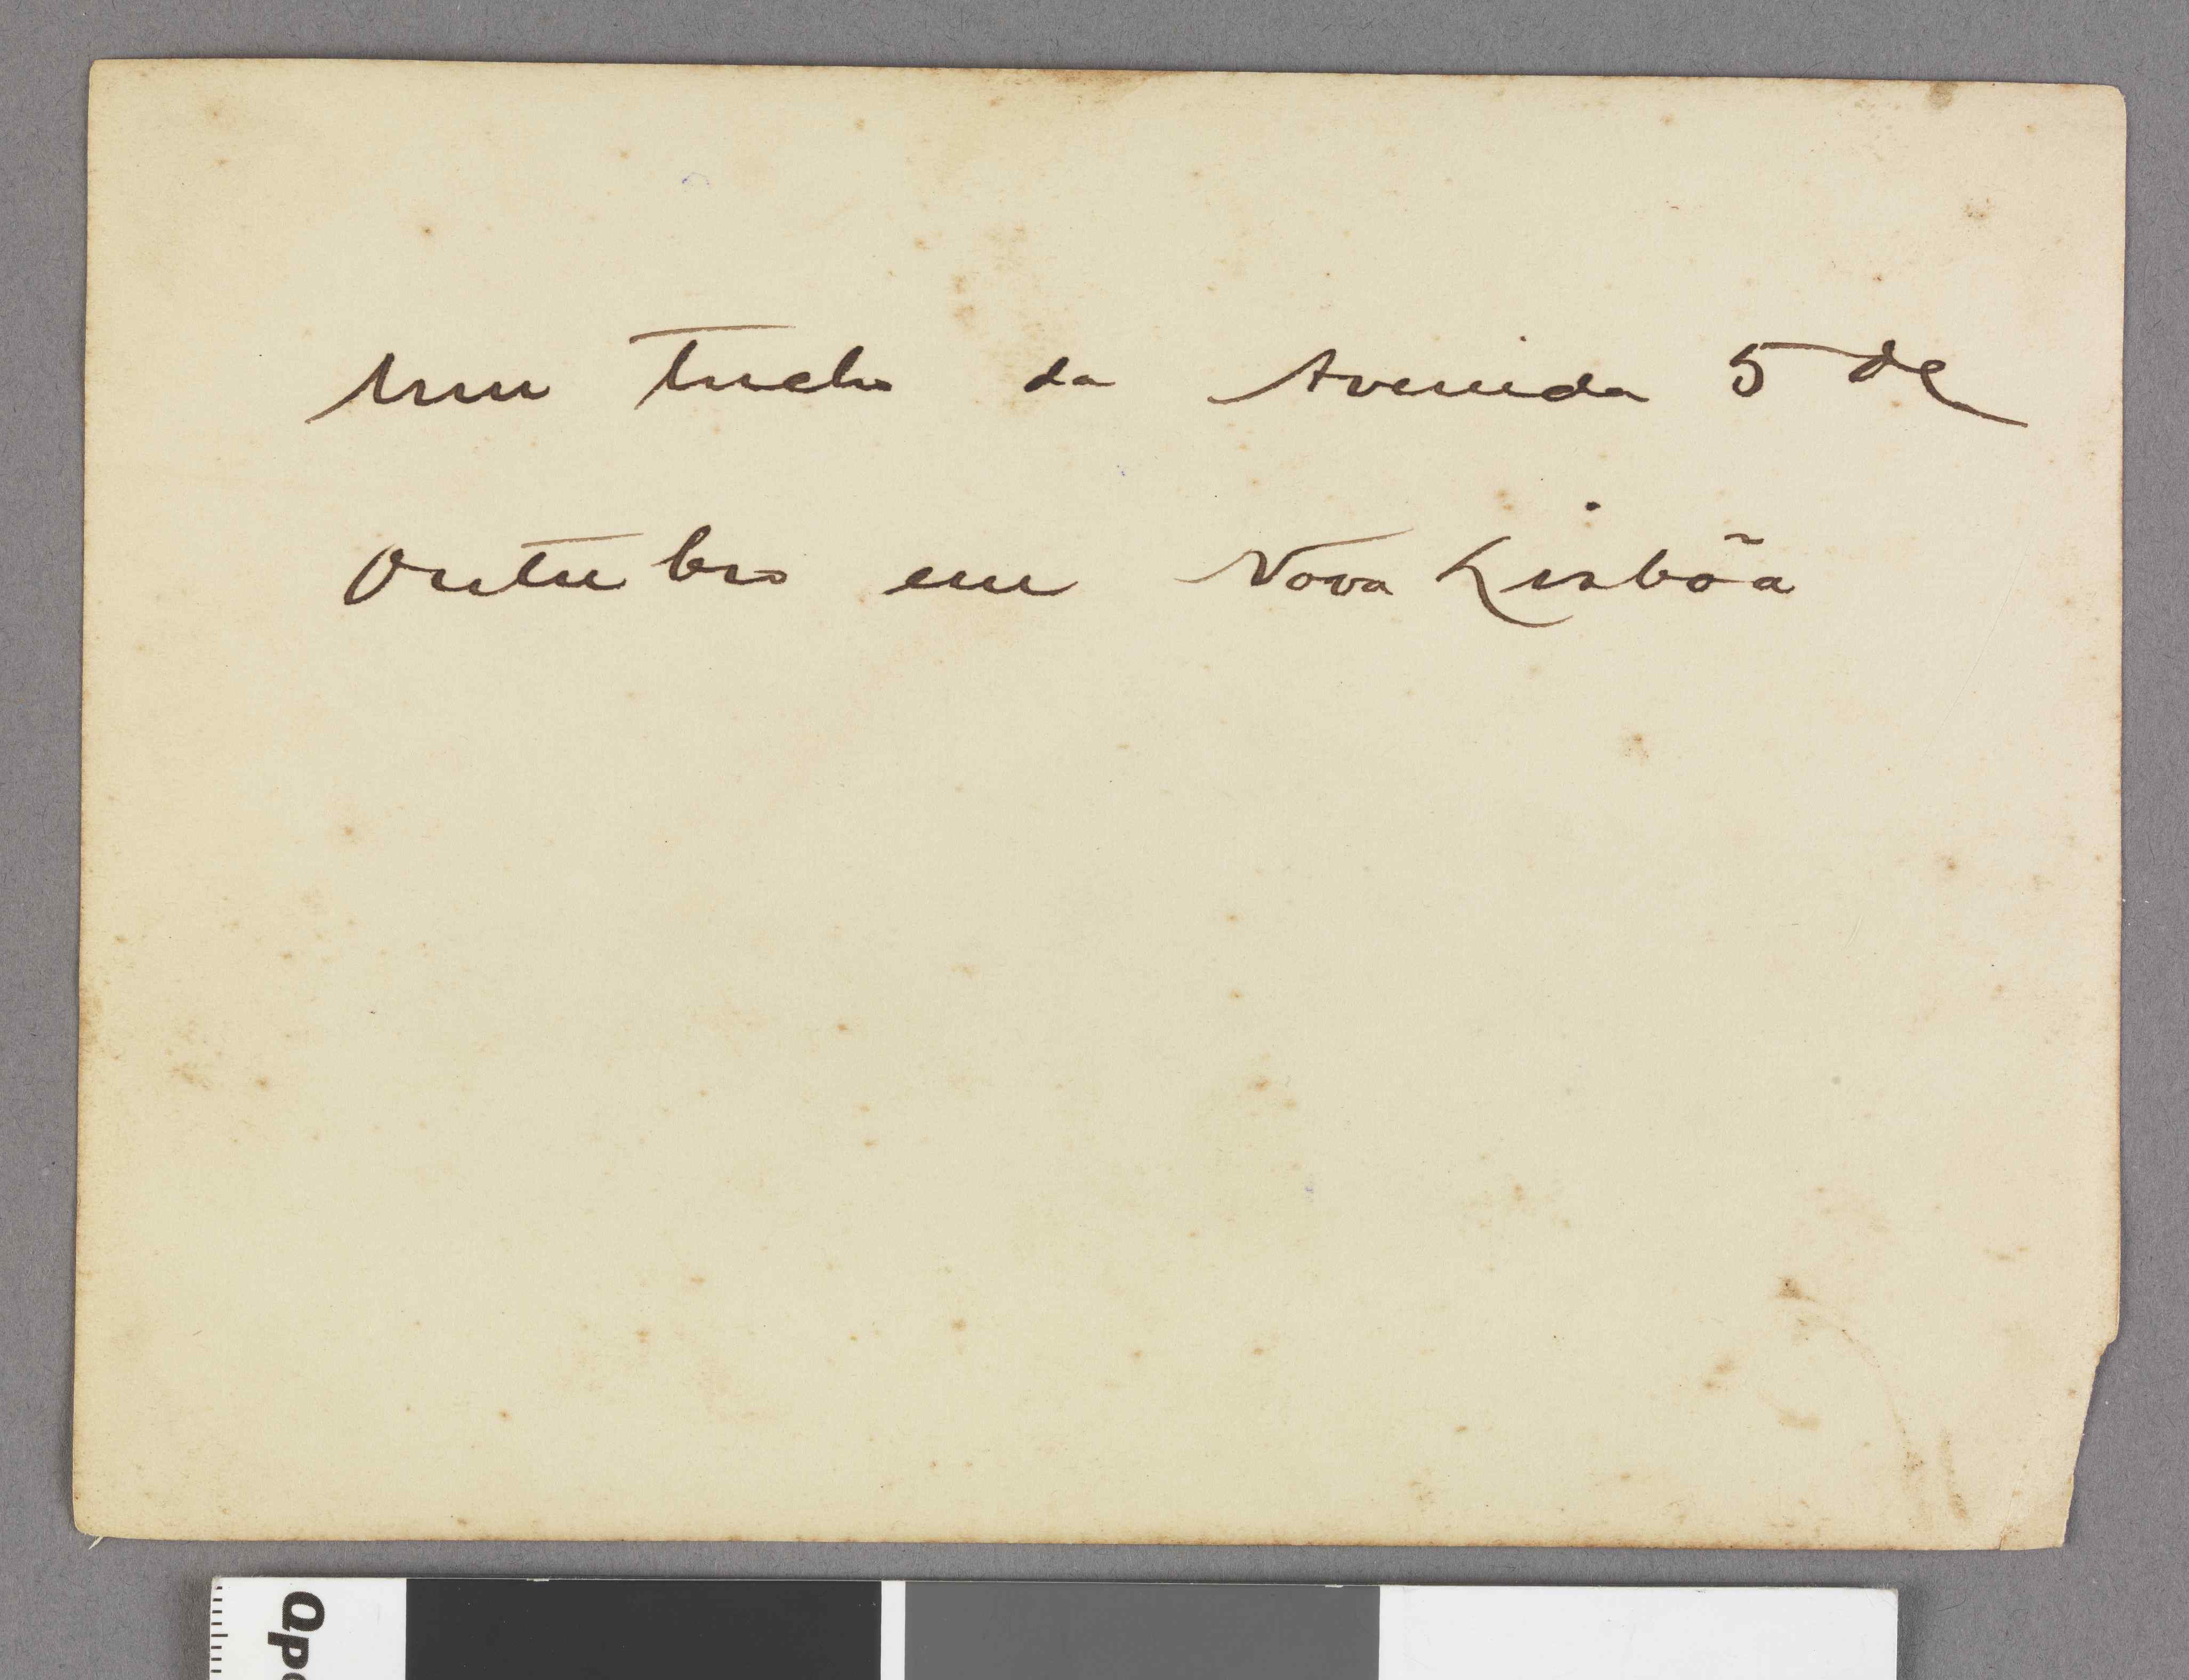 Um trecho da Avenida 5 de
Outubro em Nova Lisbõa